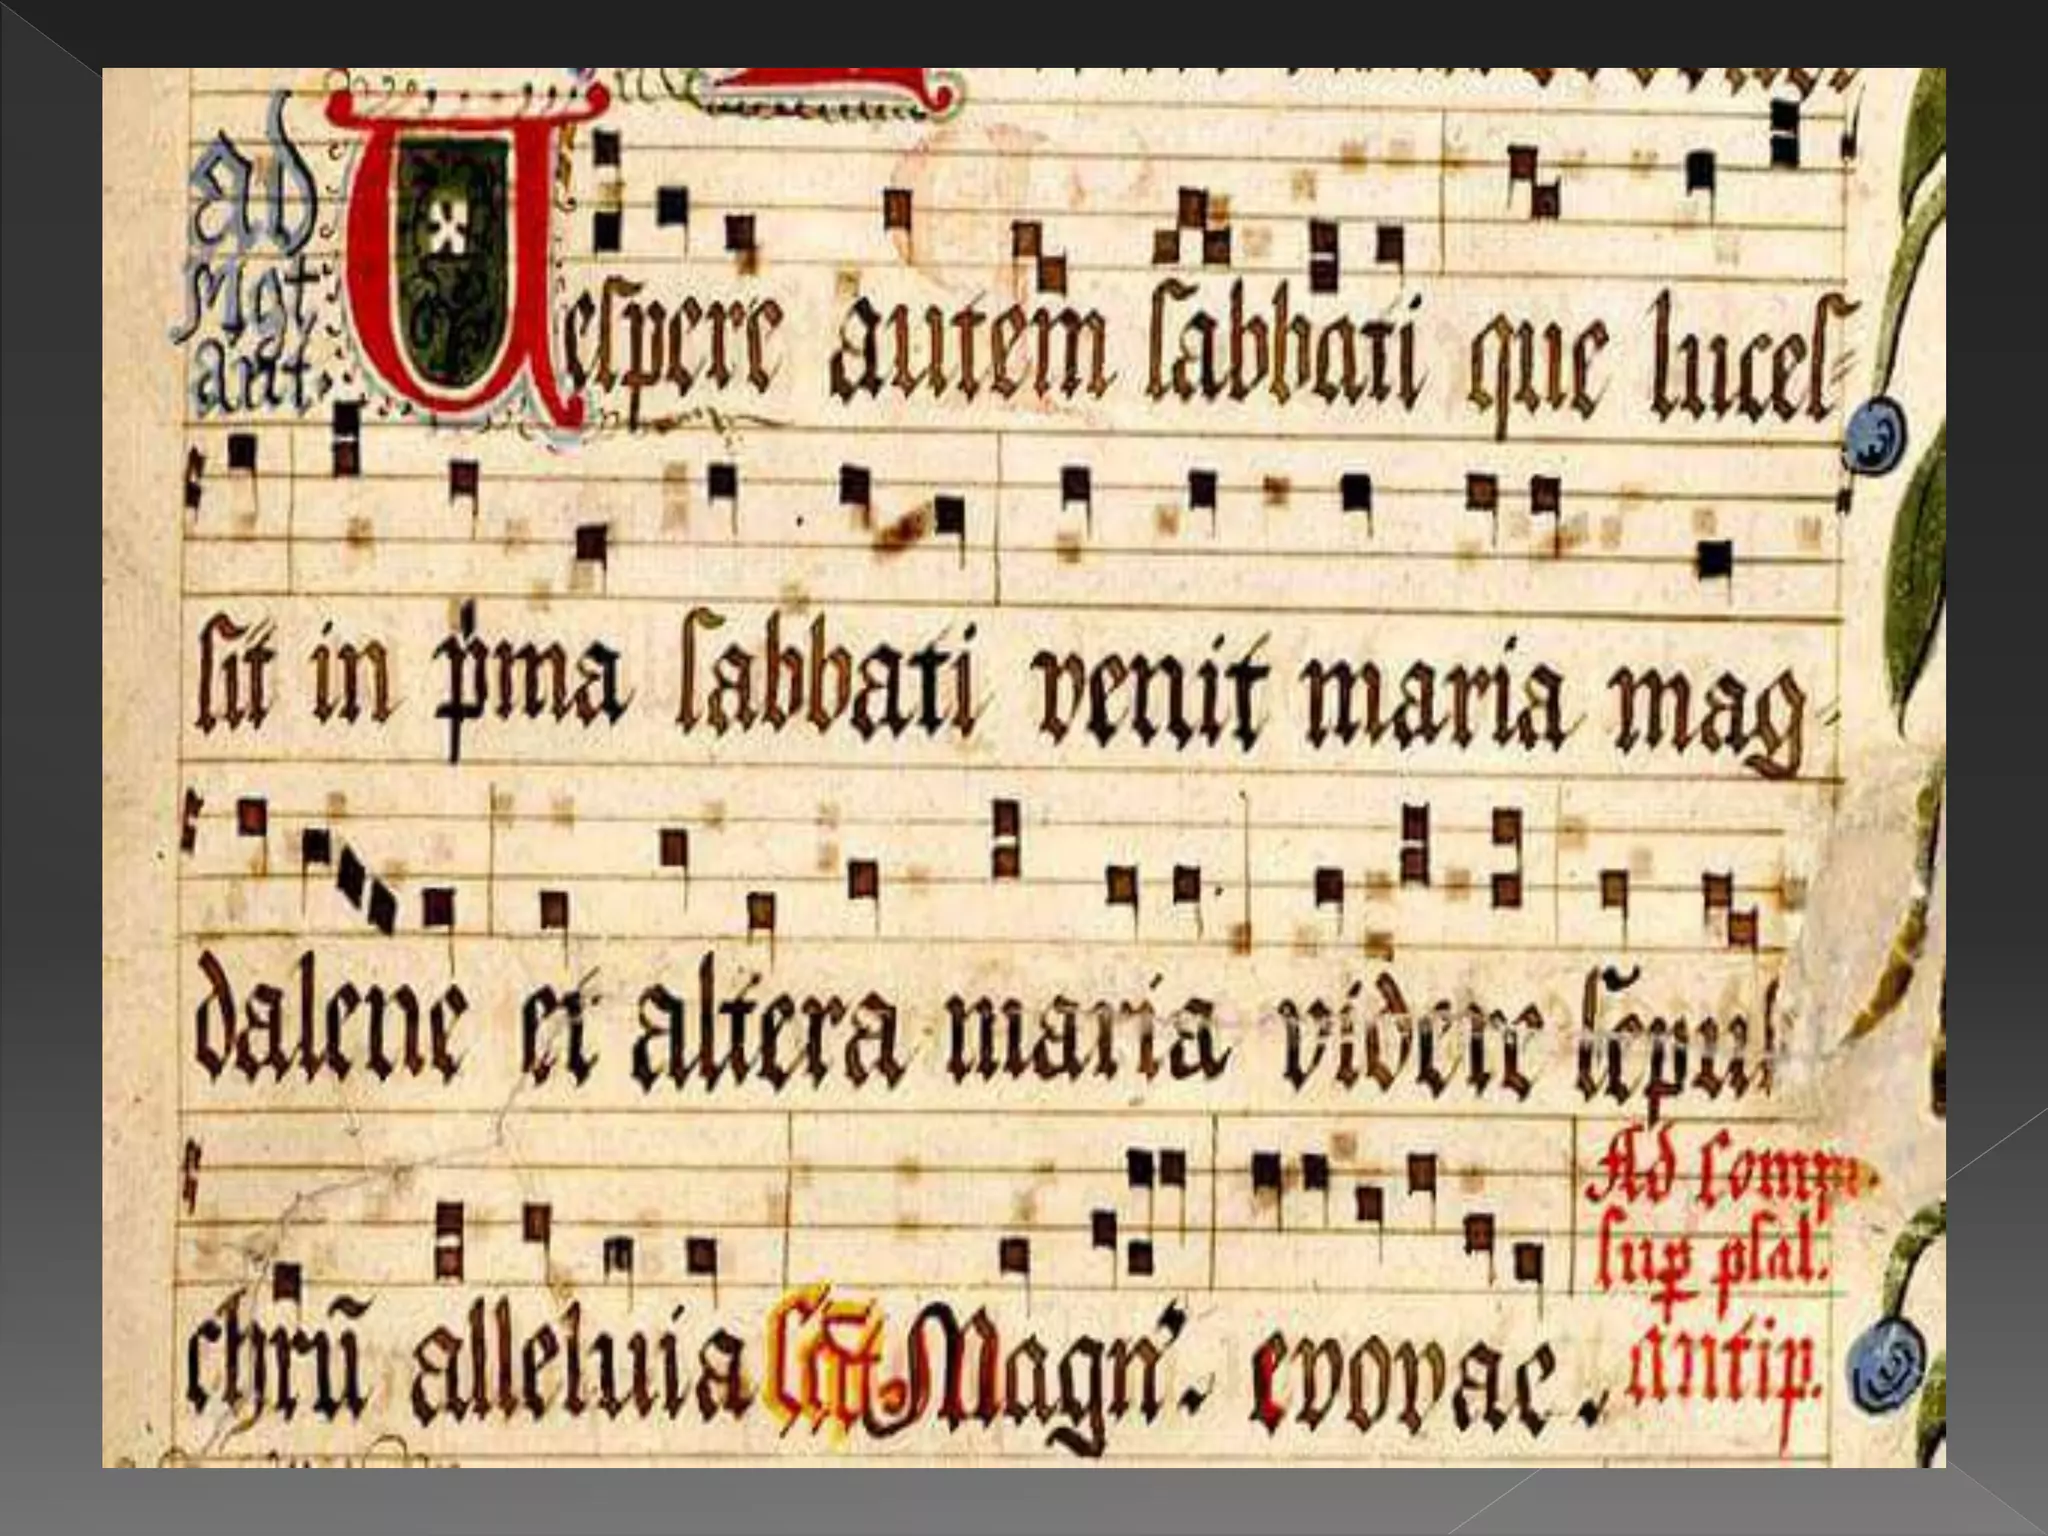 ad
Mgt
ant.
Uespere autem sabbati que luces-
sit in pma sabbati venit maria mag-
dalene et altera maria videre sepul
chrū alleluia Magn. evovae.
Ad Comp
sup psal.
antip.